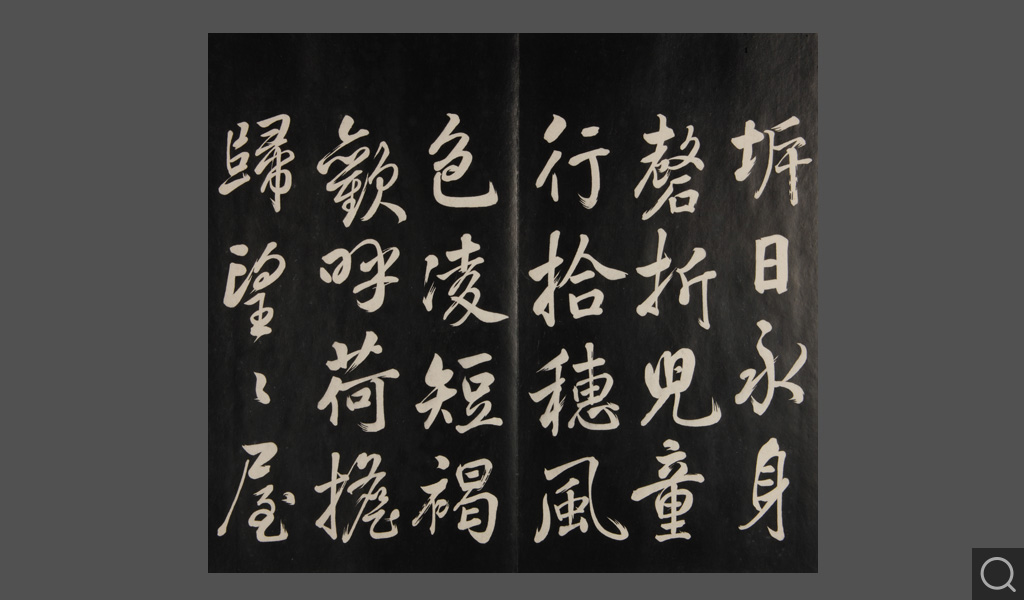 坼日永身
磬折兒童
行拾穗風
色凌短褐
歡呼荷擔
歸望〻屋